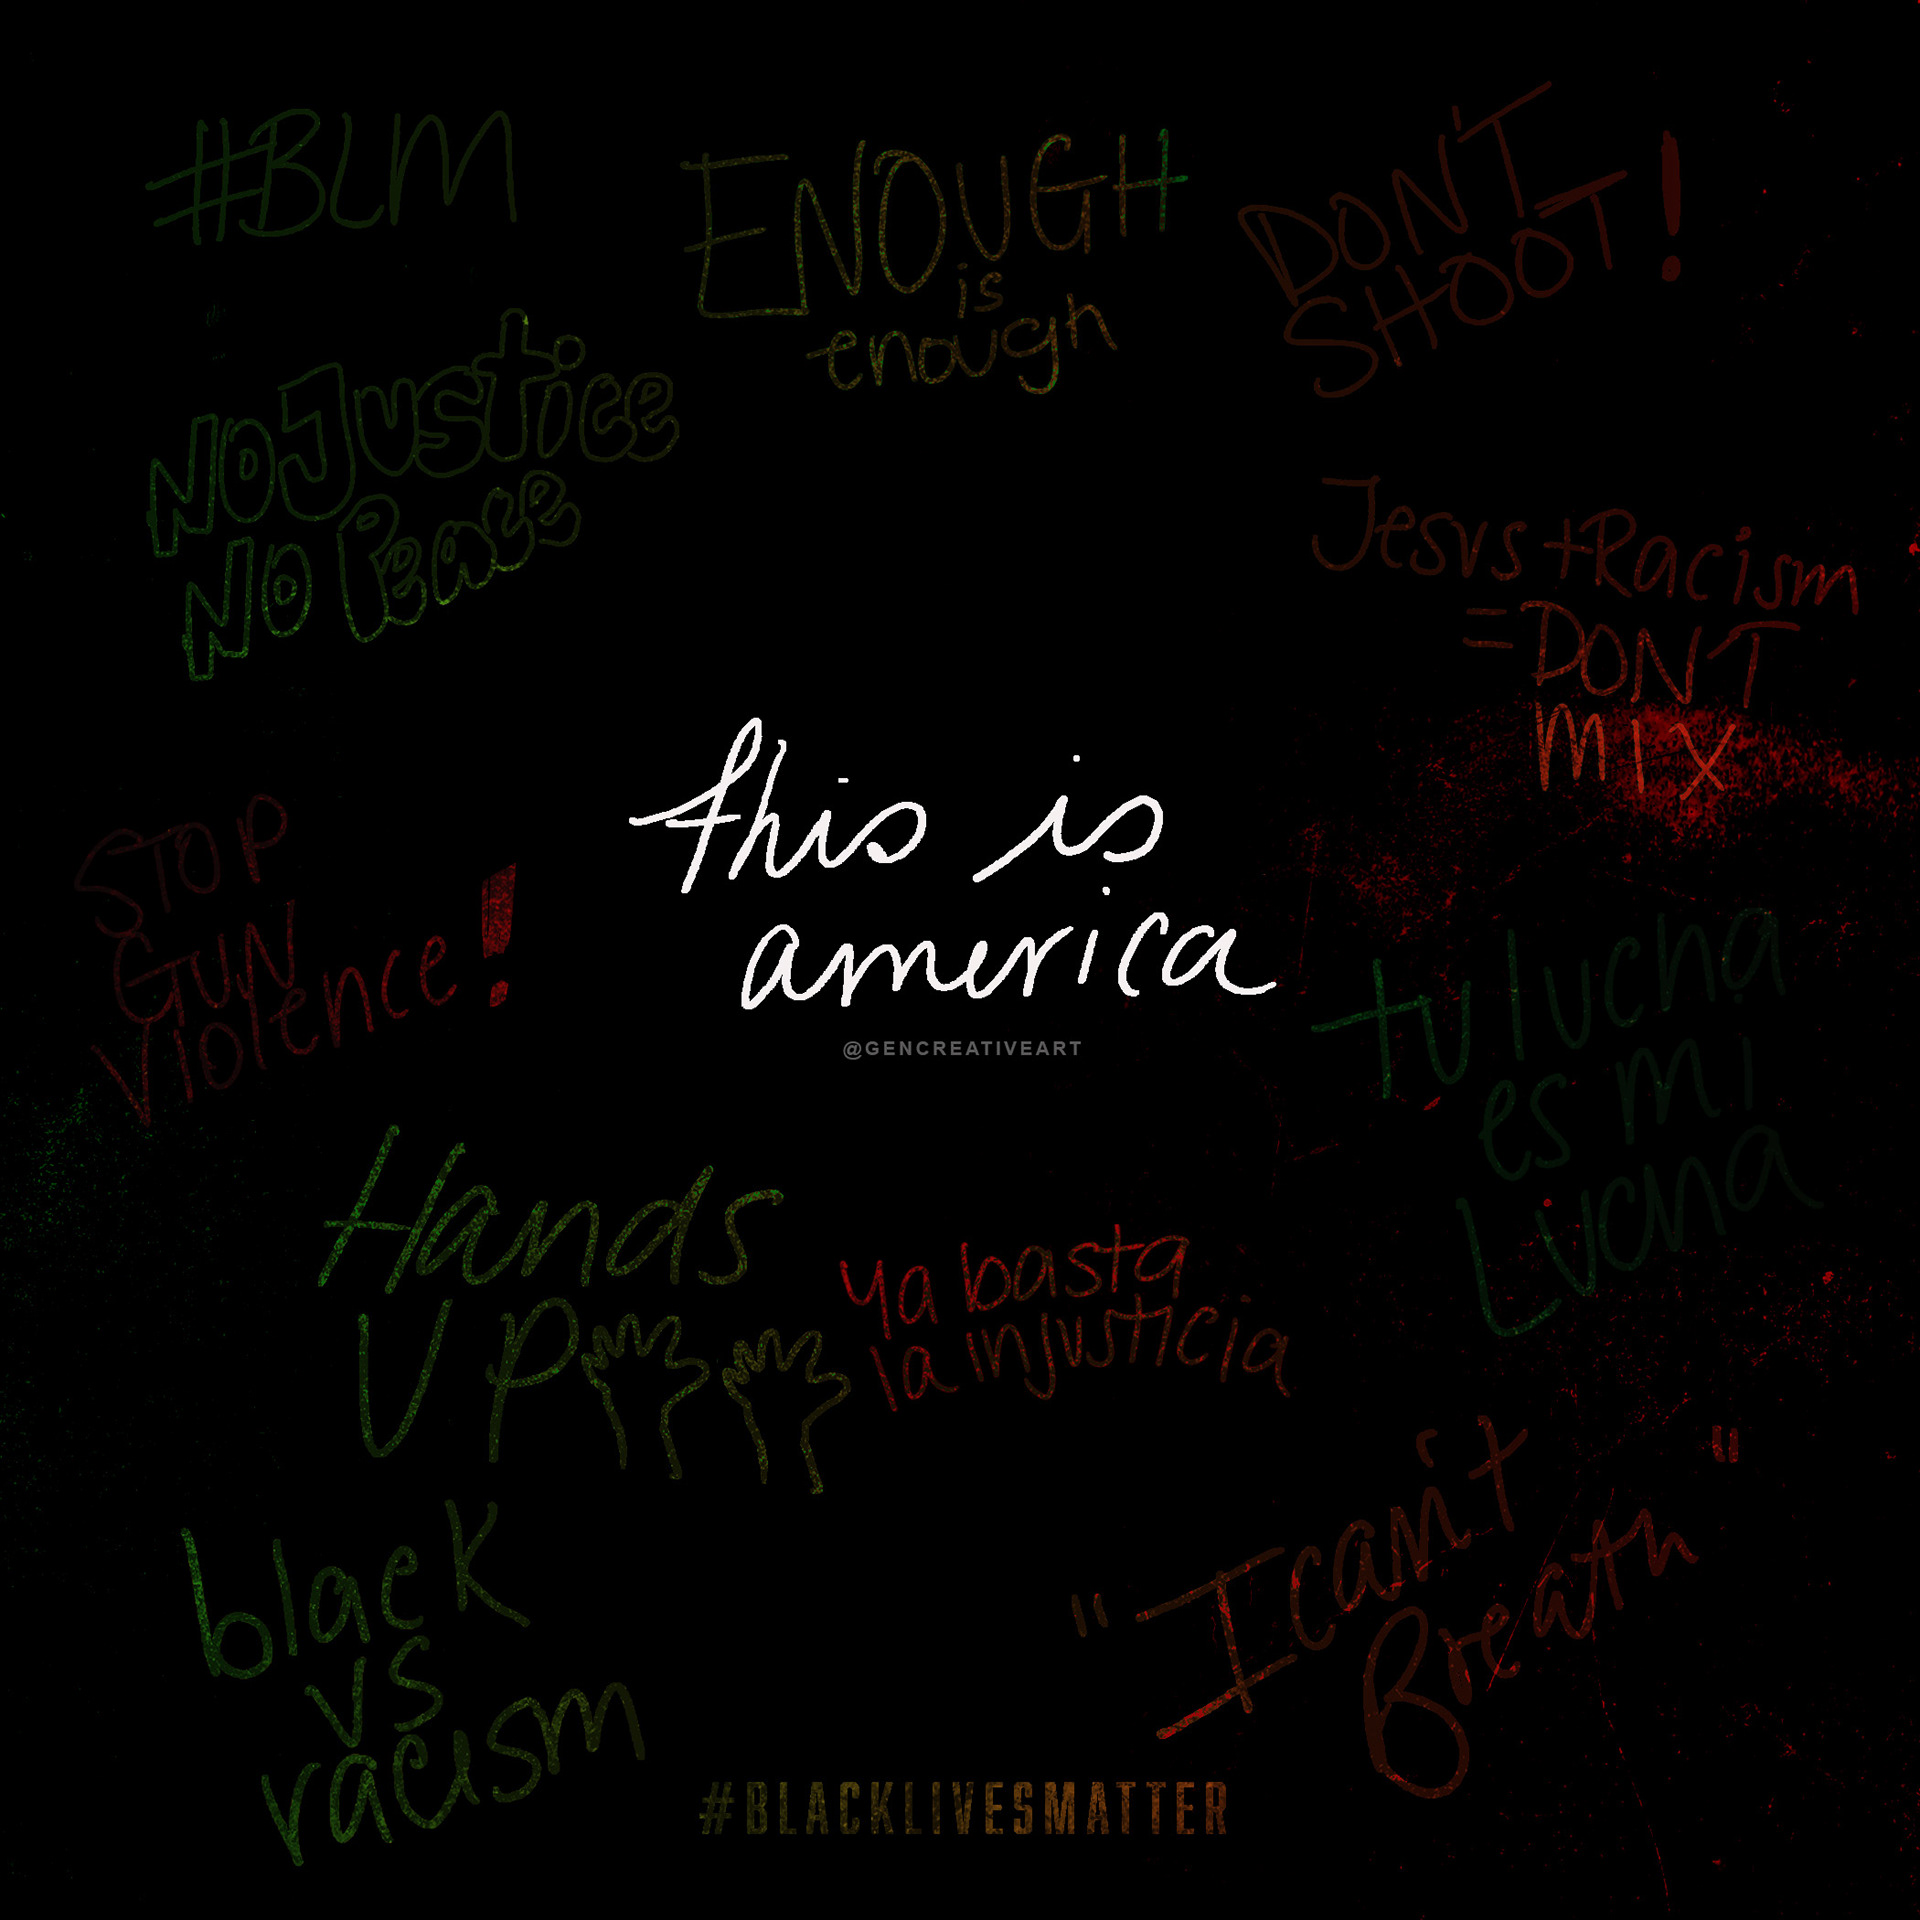 #BLM
ENOUGH
is
enough
DON'T
SHOOT!
NO JUSTICE
NO Peace
Jesus + Racism
= DONT
MIX
this is
america
@GENCREATIVEART
STOP
GUN
violence!
tu lucha
es mi
Lucha
Hands
UP
ya basta
la injusticia
"I can't
Breath"
black
vs
racism
#BLACKLIVESMATTER